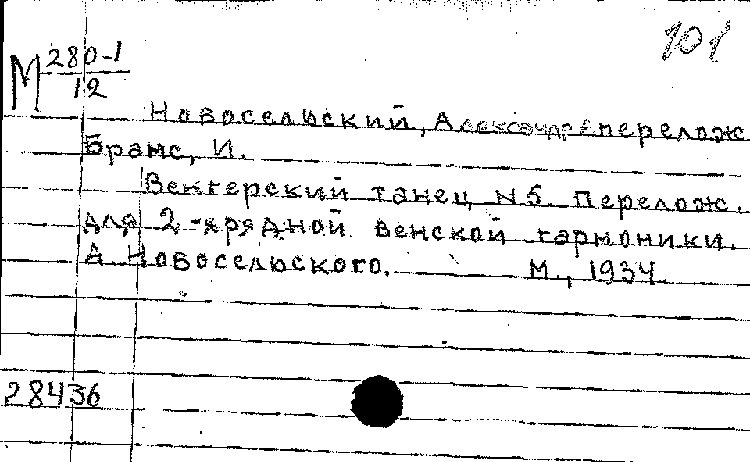 101
М 280-1
12
Новосельский, Александр перелож
Брамс, И.
Венгерский танец N5. Перелож.
для 2-хрядной венской гармоники.
А. Новосельского. М., 1934
28436